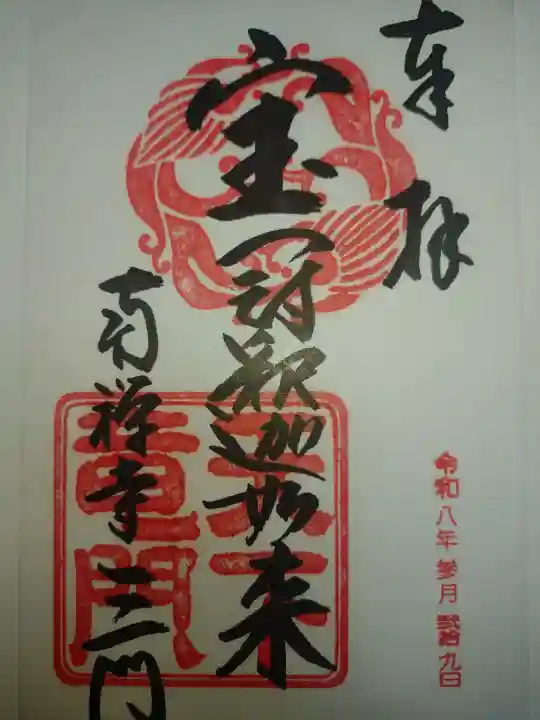 奉拝
宝冠釈迦如来
南禅寺三門
令和八年参月弐拾九日